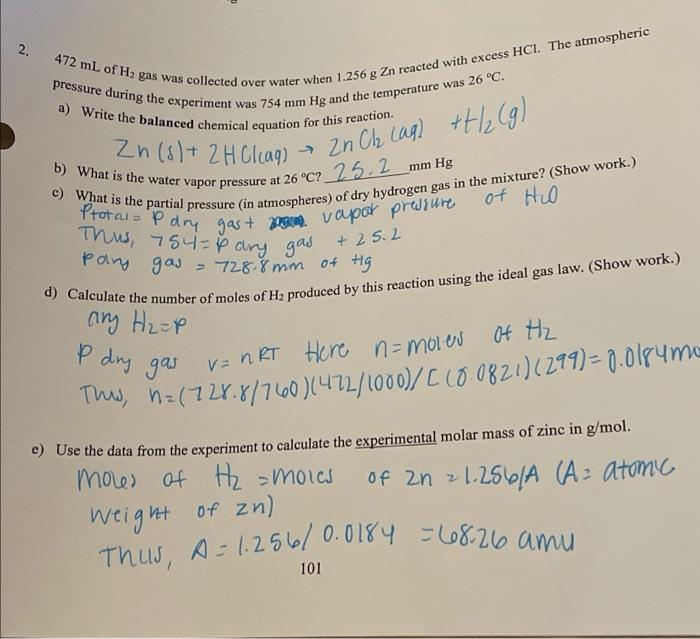 2. 472 mL of H₂ gas was collected over water when 1.256 g Zn reacted with excess HCl. The atmospheric
pressure during the experiment was 754 mm Hg and the temperature was 26 °C.
a) Write the balanced chemical equation for this reaction.
Zn (s) + 2HCl(aq) → ZnCl₂ (aq) + H₂ (g)
b) What is the water vapor pressure at 26 °C? 25.2 mm Hg
c) What is the partial pressure (in atmospheres) of dry hydrogen gas in the mixture? (Show work.)
Ptotal = P dry gas + vapor pressure of H₂O
Thus, 754 = P dry gas + 25.2
P dry gas = 728.8 mm of Hg
d) Calculate the number of moles of H₂ produced by this reaction using the ideal gas law. (Show work.)
dry H₂ = P
P dry gas V = nRT Here n = moles of H₂
Thus, n = (728.8/760)(472/1000)/[(0.0821)(299) = 0.0184 mo
e) Use the data from the experiment to calculate the experimental molar mass of zinc in g/mol.
moles of H₂ = moles of Zn = 1.256/A (A = atomic
weight of Zn)
Thus, A = 1.256/0.0184 = 68.26 amu
101